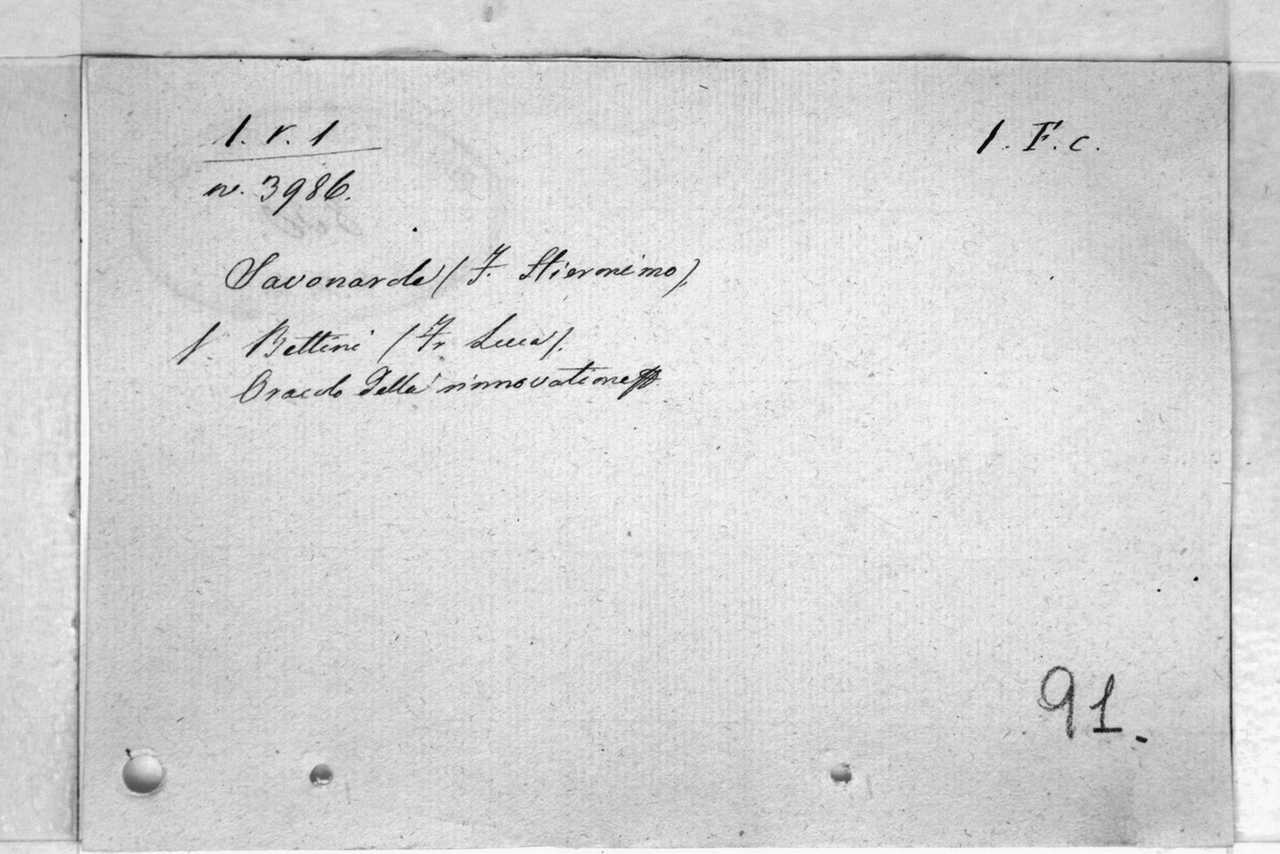 1. r. 1
1. F. c.
n. 3986.
Savonarola (F. Hieronimo)
V. Bettini (Fr Luca).
Oracolo della rinnovatione
91.